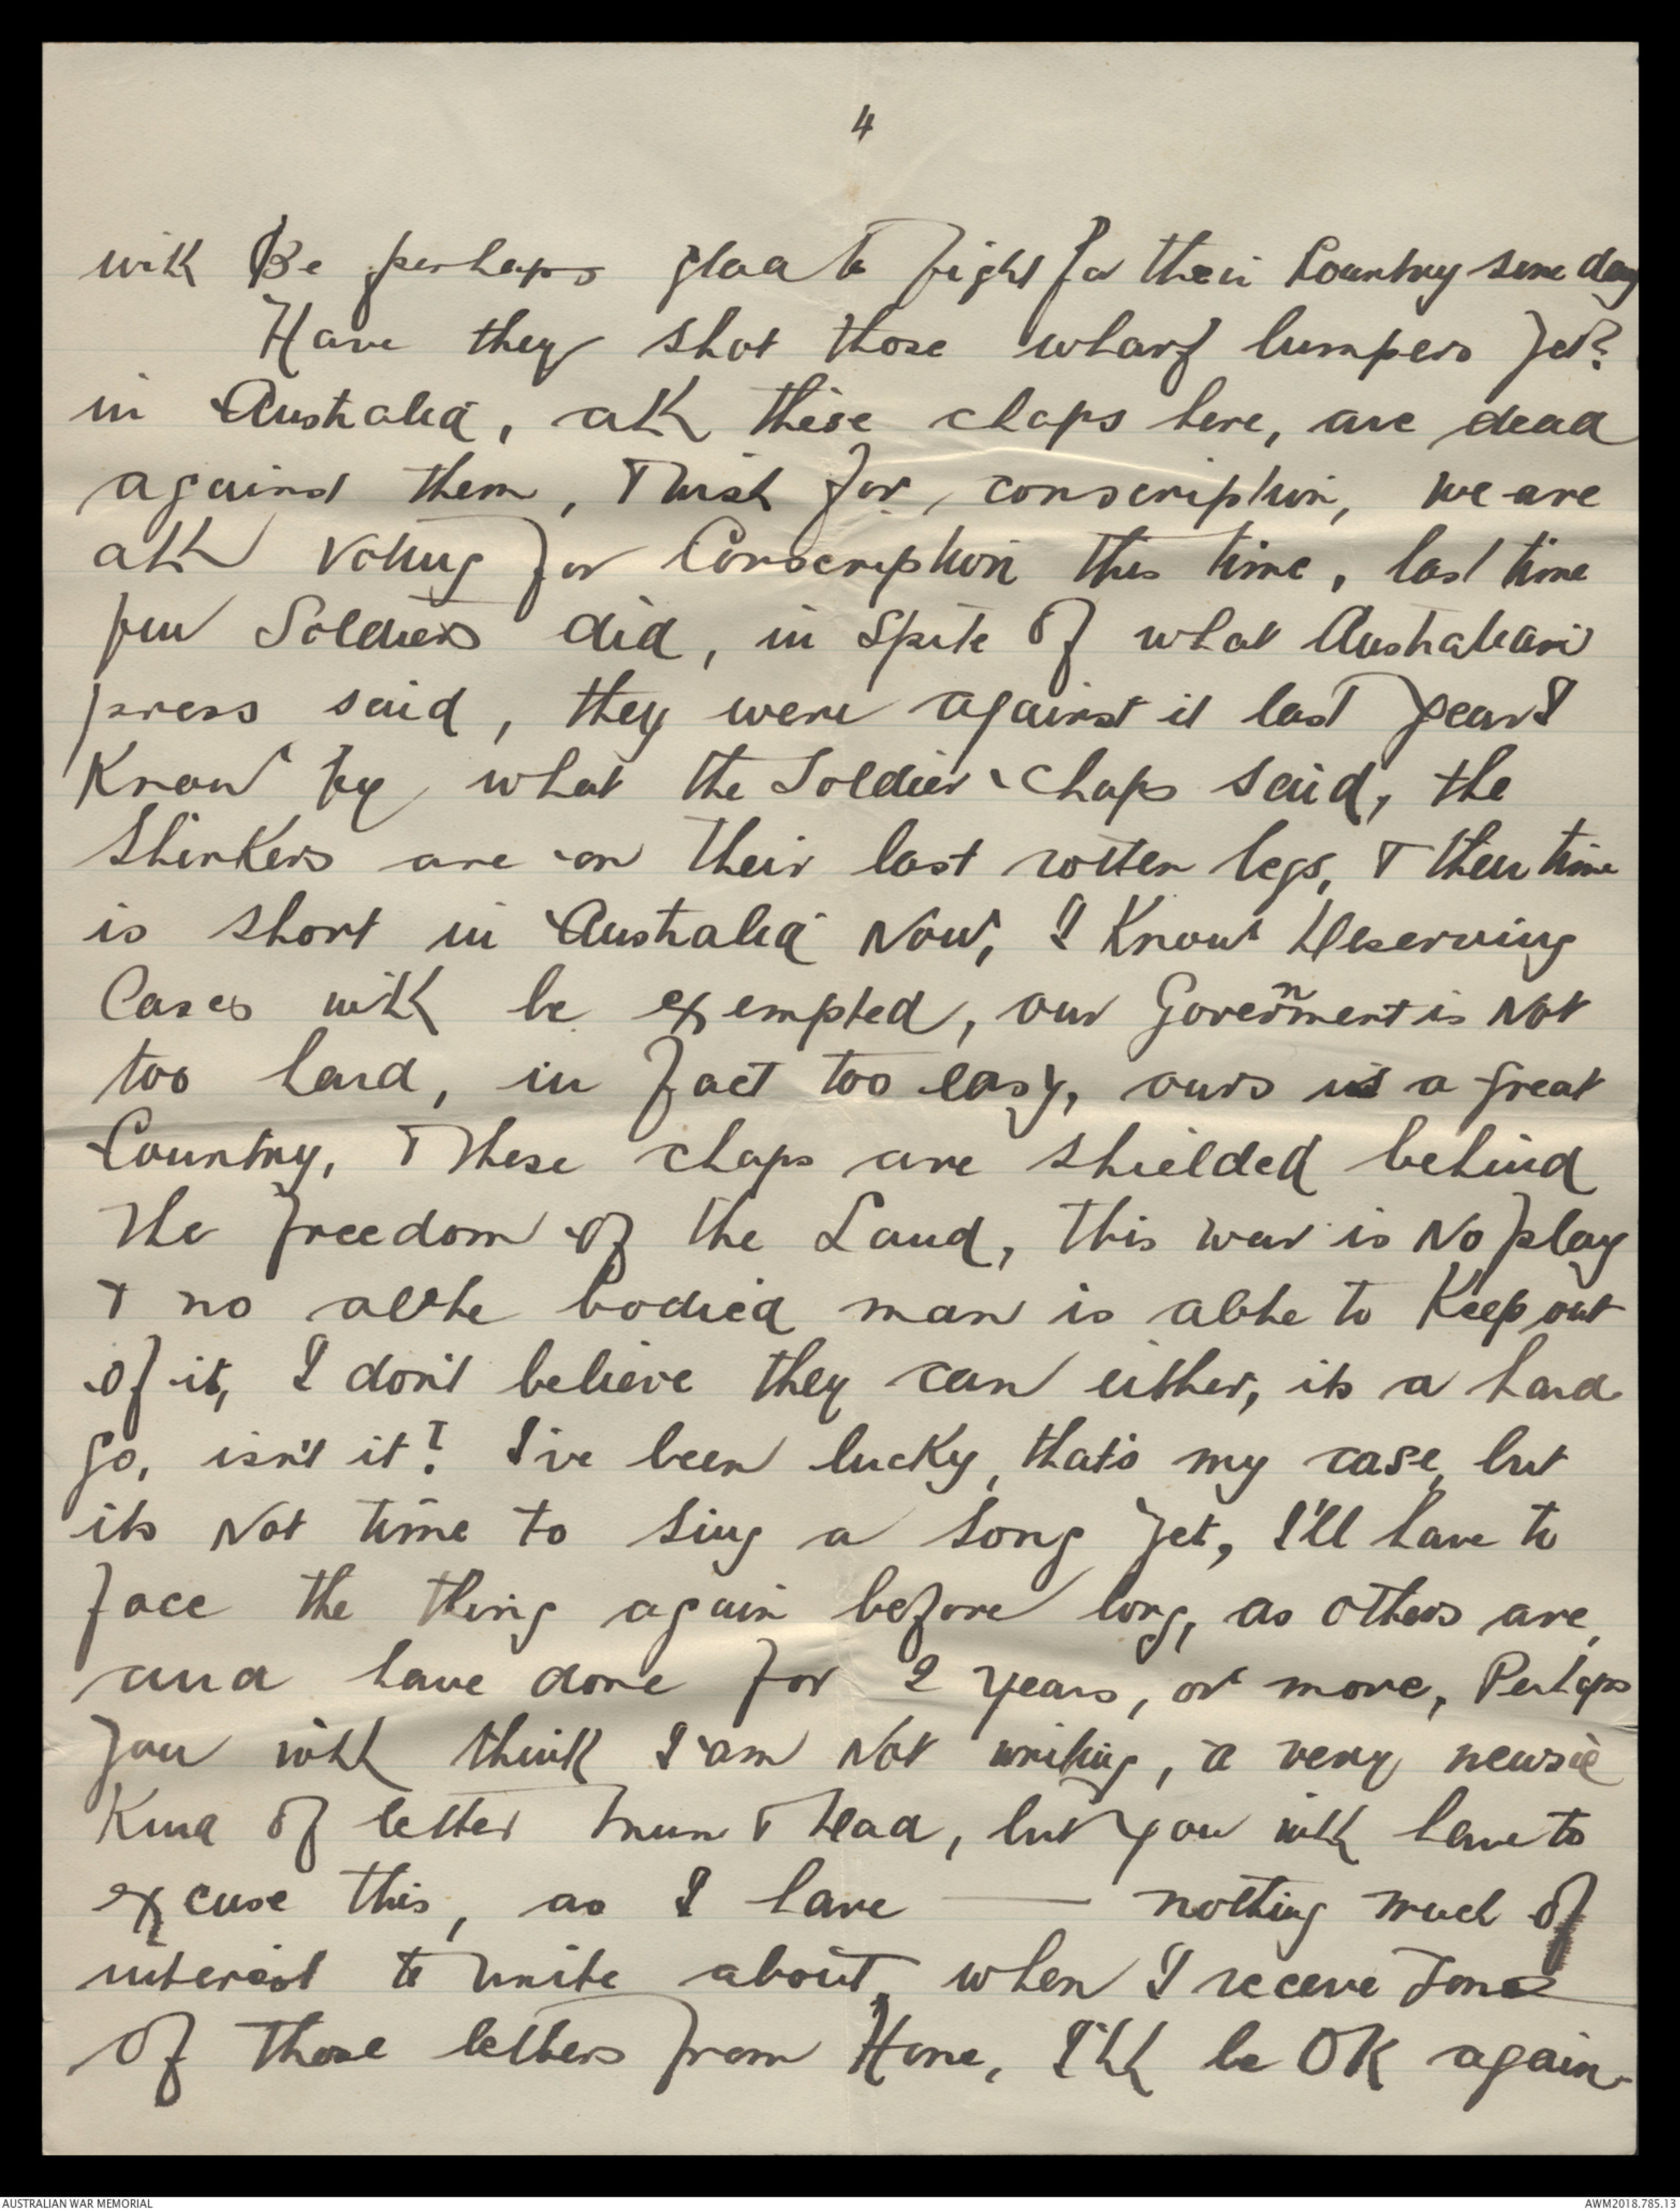 4
will Be perhaps glad to fight for their Country some day
Have they shot those wharf lumpers yet?
in Australia, all these chaps here, are dead
against them, & wish for, conscription, we are
all voting for Conscription this time, last time
few Soldiers did, in spite of what Australian
press said, they were against it last year I
Know by what the Soldier chaps said, the
Shirkers are on their last rotten legs, & their time
is short in Australia Now, I Know deserving
Cases will be exempted, our Government is Not
too hard, in fact too easy, ours is a great
Country, & these chaps are shielded behind
the freedom of the Land, this war is No play
& no able bodied man is able to Keep out
of it, I don't believe they can either, its a hard
go, isn't it? I've been lucky, that's my case, but
its Not time to sing a song yet, I'll have to
face the thing again before long, as others are,
and have done for 2 years, or more, Perhaps
you will think I am Not writing, a very newsie
Kind of letter Mum & Dad, but you will have to
excuse this, as I have —— nothing much of
interest to write about, when I receve some
of those letters from Home, I'll be OK again-
AUSTRALIAN WAR MEMORIAL
AWM2018.785.13